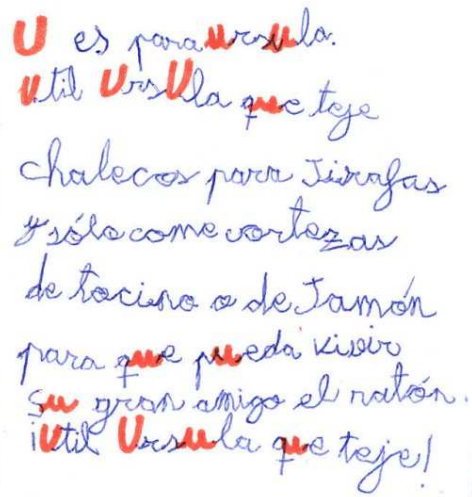 U es para ursula.
Util UrsUla que teje
chalecos para Jirafas
y sólo come cortezas
de tocino o de Jamón
para que pueda vivir
su gran amigo el ratón.
¡Util Ursula que teje!